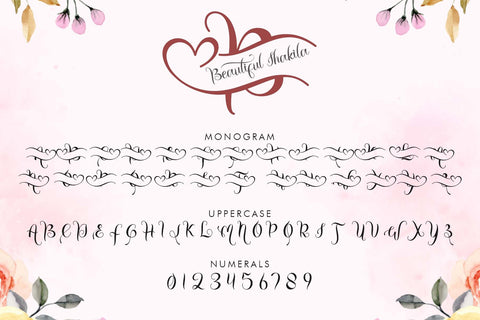 Beautiful Shakila
MONOGRAM
UPPERCASE
A B C D E F G H I J K L M N O P Q R S T U V W X Y Z
NUMERALS
0 1 2 3 4 5 6 7 8 9